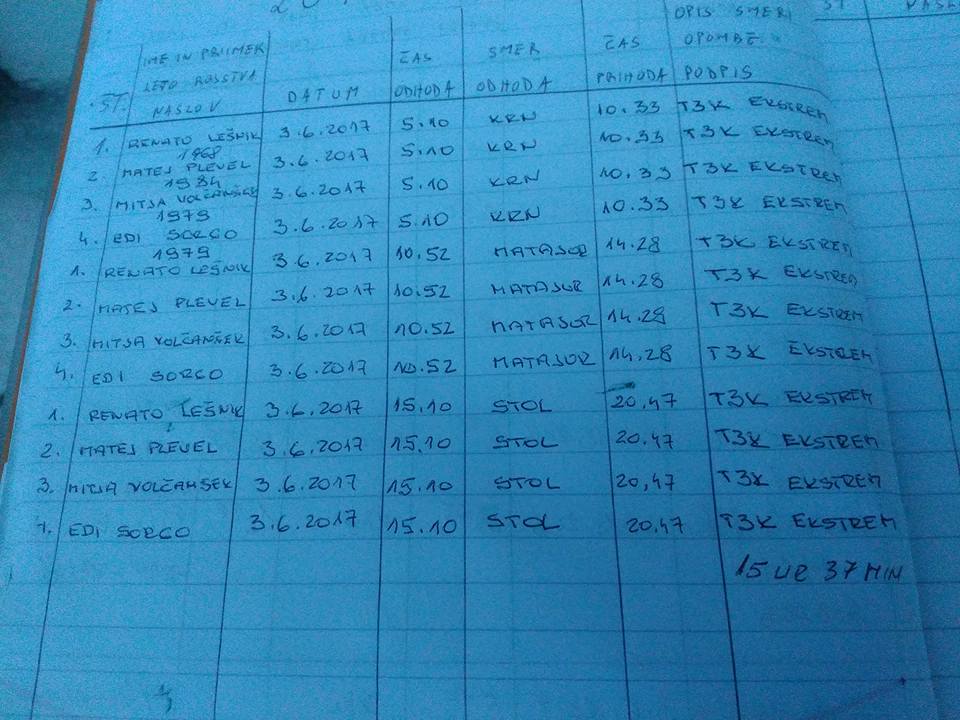 ŠT. IME IN PRIIMEK LETO ROJSTVA NASLOV DATUM ČAS ODHODA SMER ODHODA ČAS PRIHODA OPIS SMERI OPOMBE PODPIS
1. RENATO LEŠNIK 1968 3.6.2017 5.10 KRN 10.33 T3K EKSTREM
2. MATEJ PLEVEL 1984 3.6.2017 5.10 KRN 10.33 T3K EKSTREM
3. MITJA VOLČANŠEK 1979 3.6.2017 5.10 KRN 10.33 T3K EKSTREM
4. EDI SORCO 1979 3.6.2017 5.10 KRN 10.33 T3K EKSTREM
1. RENATO LEŠNIK 3.6.2017 10.52 MATAJUR 14.28 T3K EKSTREM
2. MATEJ PLEVEL 3.6.2017 10.52 MATAJUR 14.28 T3K EKSTREM
3. MITJA VOLČANŠEK 3.6.2017 10.52 MATAJUR 14.28 T3K EKSTREM
4. EDI SORCO 3.6.2017 10.52 MATAJUR 14.28 T3K EKSTREM
1. RENATO LEŠNIK 3.6.2017 15.10 STOL 20,47 T3K EKSTREM
2. MATEJ PLEVEL 3.6.2017 15.10 STOL 20.47 T3K EKSTREM
3. MITJA VOLČANŠEK 3.6.2017 15.10 STOL 20,47 T3K EKSTREM
4. EDI SORCO 3.6.2017 15.10 STOL 20.47 T3K EKSTREM
15 UR 37 MIN